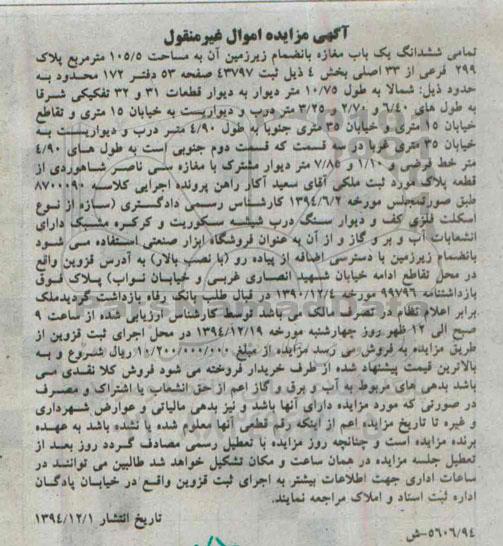 آگهی مزایده اموال غیرمنقول
تمامی ششدانگ یک باب مغازه بانضمام زیرزمین آن به مساحت ۱۰۵/۵ مترمربع پلاک
۲۹۹ فرعی از ۳۳ اصلی بخش ٤ ذیل ثبت ٤۳۷۹۷ صفحه ۵۳ دفتر ۱۷۲ محدود به
حدود ذیل: شمالا به طول ۱۰/۷۵ متر دیوار به دیوار قطعات ۳۱ و ۳۲ تفکیکی شرقا
به طول های ٦/٤۰ و ۲/۷۰ و ۳/۲۵ متر درب و دیواریست به خیابان ۱۵ متری و تقاطع
خیابان ۱۵ متری و خیابان ۳۵ متری جنوبا به طول ٤/۹۰ متر درب و دیواریست به
خیابان ۳۵ متری غربا در سه قسمت که قسمت دوم جنوبی است به طول های ٤/۹۰
متر خط فرضی و ۱/۱۰ و ۷/۸۵ متر دیوار مشترک با مغازه سی ناصر شاهوردی از
قطعه پلاک مورد ثبت ملکی آقای سعید آکار راهن پرونده اجرایی کلاسه ۸۷۰۰۰۹۰
طبق صورتمجلس مورخه ۱۳۹٤/٦/۲ کارشناس رسمی دادگستری (سازه از نوع
اسکلت فلزی کف و دیوار سنگ درب شیشه سکوریت و کرکره مشبک دارای
انشعابات آب و بر و گاز و از آن به عنوان فروشگاه ابزار صنعتی استفاده می شود
بانضمام زیرزمین با دسترسی اضافه از پیاده رو (با نصب بالار) به آدرس قزوین واقع
در محل تقاطع ادامه خیابان شهید انصاری غربی و خیابان نواب) پلاک فوق
بازداشتنامه ۹۹۷۹٦ مورخه ۱۳۹۰/۱۲/٤ در قبال طلب بانک رفاه بازداشت گردیدملک
برابر اعلام نظام در تصرف مالک می باشد توسط کارشناس ارزیابی شده از ساعت ۹
صبح الی ۱۲ ظهر روز چهارشنبه مورخه ۱۳۹٤/۱۲/۱۹ در محل اجرای ثبت قزوین از
طریق مزایده به فروش می رسد مزایده از مبلغ ۱۵/۲۰۰/۰۰۰/۰۰۰ ریال شروع و به
بالاترین قیمت پیشنهاد شده از طرف خریدار فروخته می شود فروش کلا نقدی می
باشد بدهی های مربوط به آب و برق و گاز اعم از حق انشعاب یا اشتراک و مصرف
در صورتی که مورد مزایده دارای آنها باشد و نیز بدهی مالیاتی و عوارض شهرداری
و غیره تا تاریخ مزایده اعم از اینکه رقم قطعی آنها معلوم شده یا نشده باشد به عهده
برنده مزایده است و چنانچه روز مزایده با تعطیل رسمی مصادف گردد روز بعد از
تعطیل جلسه مزایده در همان ساعت و مکان تشکیل خواهد شد طالبین می توانند در
ساعات اداری جهت اطلاعات بیشتر به اجرای ثبت قزوین واقع در خیابان پادگان
اداره ثبت اسناد و املاک مراجعه نمایند.
تاریخ انتشار ۱۳۹٤/۱۲/۱
۵٦۰٦/۹٤-ش